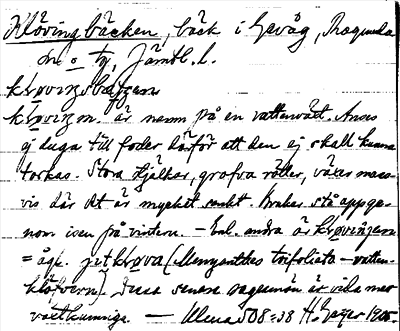 Klövingbäcken, bäck i Gevåg, Ragunda
sn. o. tg, Jämtl. l.
kḷøviŋsbæḱḱen
kḷøviŋen. är namn på en vattenväxt. Anses
ej duga till foder därför att den ej skall kunna
torkas. Stora stjälkar, grofva rötter, växer mass-
vis där det är mycket vatt. Brukar stå uppge-
nom isen på vintern. — Enl. andra är kḷøviŋen
= ågr. jetkḷøva (Menyanthes trifoliata — vatten-
klöfvern). Dessa senare sagesmän är vida mer
växtkunniga. — Ulma 508:38 H. Geijer 1905.